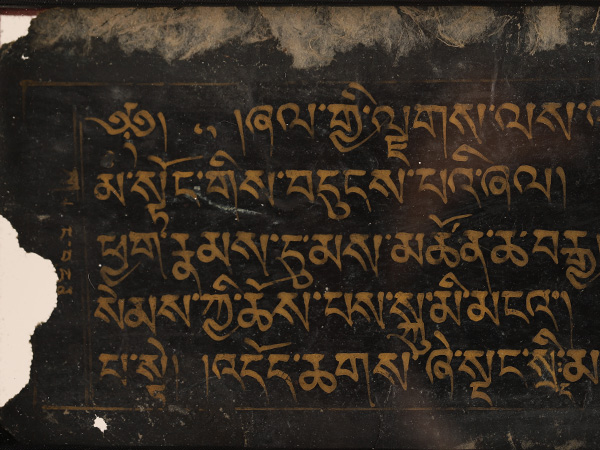 ༄༅། །ཞལ་གྱི་ལྗགས་ལས་
མ་སྟོང་གིས་བདུངས་པའི་ཞལ།
ཕྱག་རྣམས་དུ་མས་མཚོན་ཆ་བརྒྱ་
སེམས་ཀྱི་ཆོས་པས་སྐུ་མི་མངའ།
ང་སྟེ། །འདོད་ཆགས་ཞེ་སྡང་སྲི་མ